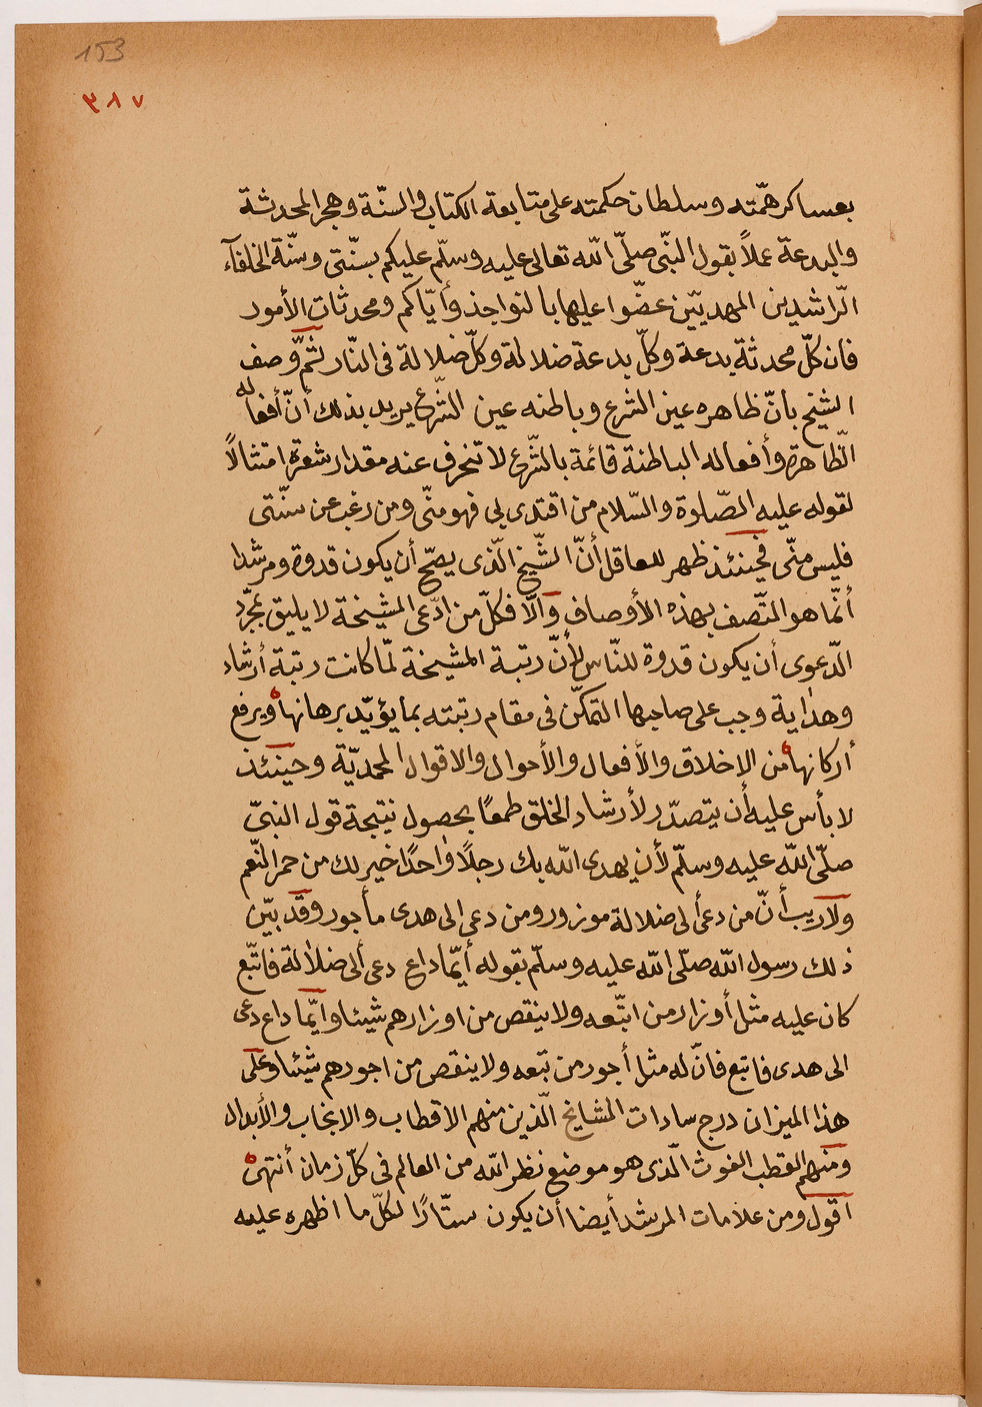 153
٣٨٧
بعساكر همّته وسلطان حكمته على متابعة الكتاب والسنّة وهجر المحدثة
والبدعة عملاً بقول النبّى صلّى الله تعالى عليه وسلّم عليكم بسنّتى وسنّة الخلفآء
الرّاشدين المهديّين عضّوا عليها بالنواجذ وأيّاكم ومحدثات الأمور
فان كلّ محدثة بدعة وكلّ بدعة ضلالة وكلّ ضلالة فى النّار ثمّ وصف
الشيخ بانّ ظاهره عين الشرع وباطنه عين الشّرع يريد بذلك أنّ أفعاله
الظّاهرة وأفعاله الباطنة قائمة بالشّرع لا تنحرف عنه مقدار شعرة امتثالاً
لقوله عليه الصّلوة والسّلام من اقتدى بى فهو منّى ومن رغب عن سنّتى
فليس منّى فحينئذ ظهر للعاقل أنّ الشّيخ الّذى يصحّ أن يكون قدوة ومرشدا
أنّما هو المتّصف بهذه الأوصاف والّا فكلّ من ادّعى المشيخة لا يليق بمجرّد
الدّعوى أن يكون قدوة للنّاس لأنّ رتبة المشيخة لمّا كانت رتبة أرشاد
وهداية وجب على صاحبها التمكّن فى مقام رتبته بما يؤيّد برهانها ويرفع
أركانها من الاخلاق والأفعال والأحوال والاقوال المحمديّة وحينئذ
لا بأس عليه أن يتصدّر لأرشاد الخلق طمعًا بحصول نتيجة قول النبىّ
صلّى الله عليه وسلّم لأن يهدى الله بك رجلًا واحدًا خير لك من حمر النّعم
ولا ريب أنّ من دعى ألى ضلالة موزور ومن دعى الى هدى مأجور وقد بيّن
ذلك رسول الله صلّى الله عليه وسلّم بقوله أيّما داع دعى ألى ضلالة فاتّبع
كان عليه مثل أوزار من اتّبعه ولا ينقص من اوزارهم شيئا وايّما داع دعى
الى هدى فاتبع فانّ له مثل أجور من تبّعه ولا ينقص من اجورهم شيئا وعلى
هذا الميزان درج سادات المشايخ الّذين منهم الاقطاب والانجاب والأبدال
ومنهم القطب الغوث الّذى هو موضع نظر الله من العالم فى كلّ زمان أنتهى
اقول ومن علامات المرشد أيضا أن يكون ستّارًا لكلّ ما اظهره عليه